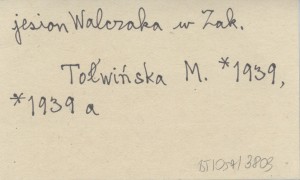 jesion Walczaka w Zak.
Tołwińska M. *1939,
*1939 a
BT1054/3803